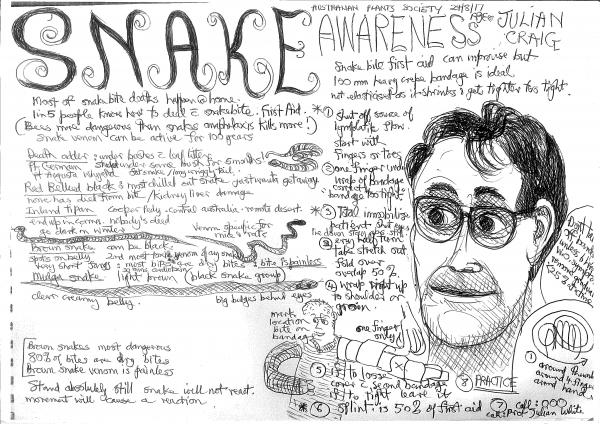 SNAKE AWARENESS
AUSTRALIAN PLANTS SOCIETY 21/8/17
JULIAN
CRAIG
Snake bite first aid can improvise but
100 mm heavy crepe bandage is ideal
not elasticised as it shrinks & gets tighter too tight.
Most of snakebite deaths happen @ home.
1 in 5 people know how to deal c snakebite. First Aid.
(Bees more dangerous than snakes amphalaxis kills more!)
Snake venom can be active for 100 years
Death adder: under bushes & leaf litter
Pt German
for 6 months!
Pt Augusta Whyalla
Red Bellied black & most chilled out snake just wants getaway
none has died from bite /kidney liver damage
Inland Tipan copper hedy central australia - remote desert.
end up in corms. nobody's died
go dark in winter
venom specific for
mice & rats
Brown snake can be black:
spots on belly 2nd most toxic venom of any snake
Very short fangs: most bites are dry bites bite is painless
Mulga snake light brown (black snake group)
clear creamy belly.
big bulges behind eyes
Brown snakes most dangerous
80% of bites are dry bites
Brown snake venom is painless
Stand absolutely still snake will not react.
movement will cause a reaction.
* 1 shut off source of
lymphatic flow.
start with
fingers or toes
2 one finger under
wrap of bandage
bandage too tight.
* 3 Total immobilise
patient
every half turn
take stretch out
fold over
overlap 50%
4 wrap right up
to shoulder or
groin.
mark
location
bite on
bandage
one finger
only
X
5 if to loose
cover c second bandage
if to tight leave it
* 6 splint: is 50% of first aid
7 call: 000
call: Prof Julian White
8 PRACTICE
1 around thumb
around 4 fingers
around hand